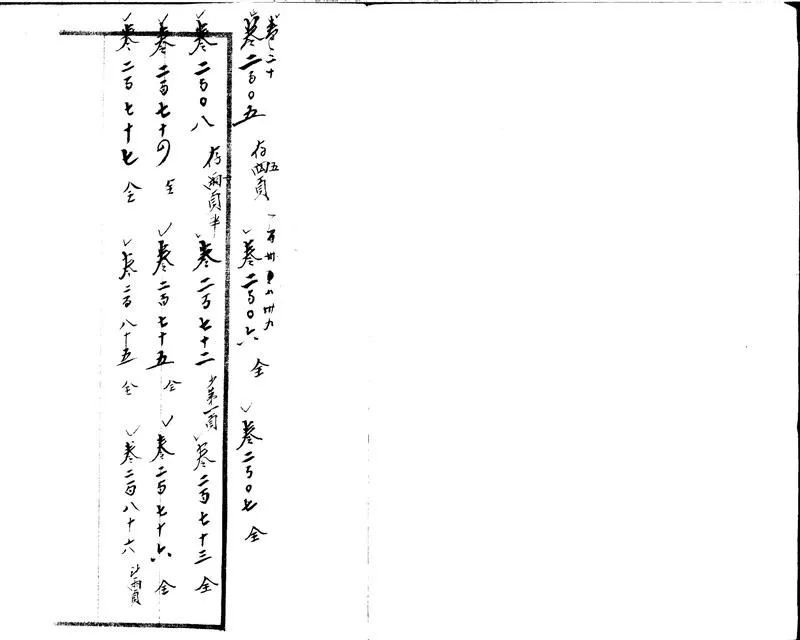 卷二十
卷二百〇五 存四頁 卷二百〇六 全 卷二百〇七 全
卷二百〇八 存兩頁半 卷二百七十二 少第一頁 卷二百七十三 全
卷二百七十四 全 卷二百七十五 全 卷二百七十六 全
卷二百七十七 全 卷二百八十五 全 卷二百八十六 少兩頁